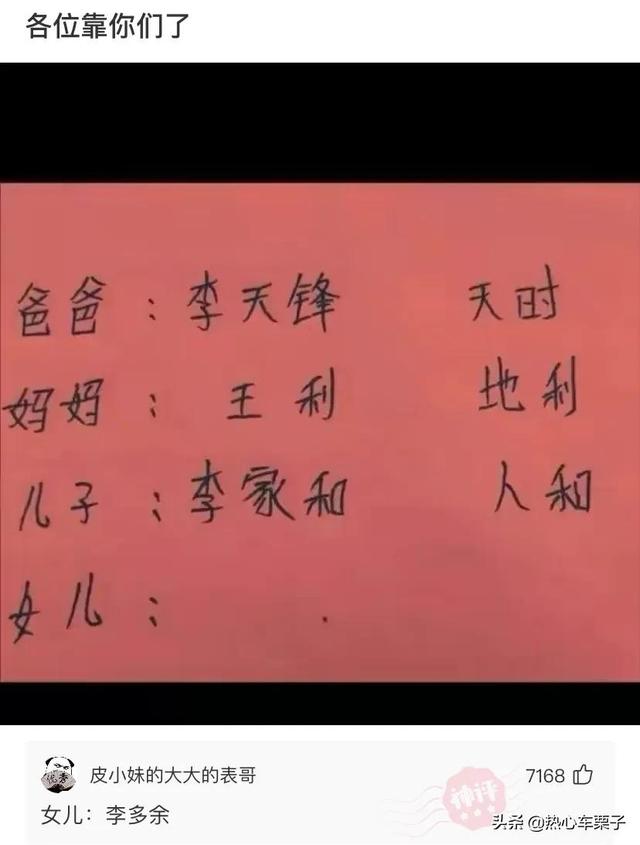 各位靠你们了
爸爸：李天锋 天时
妈妈：王利 地利
儿子：李家和 人和
女儿：
皮小妹的大大的表哥 7168
女儿：李多余
神评
头条 @热心车栗子